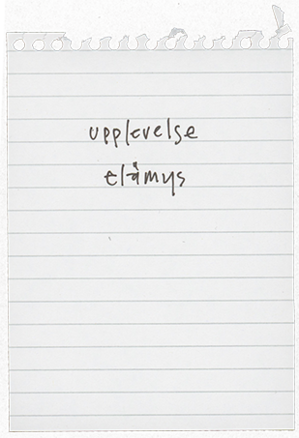 upplevelse
elämys